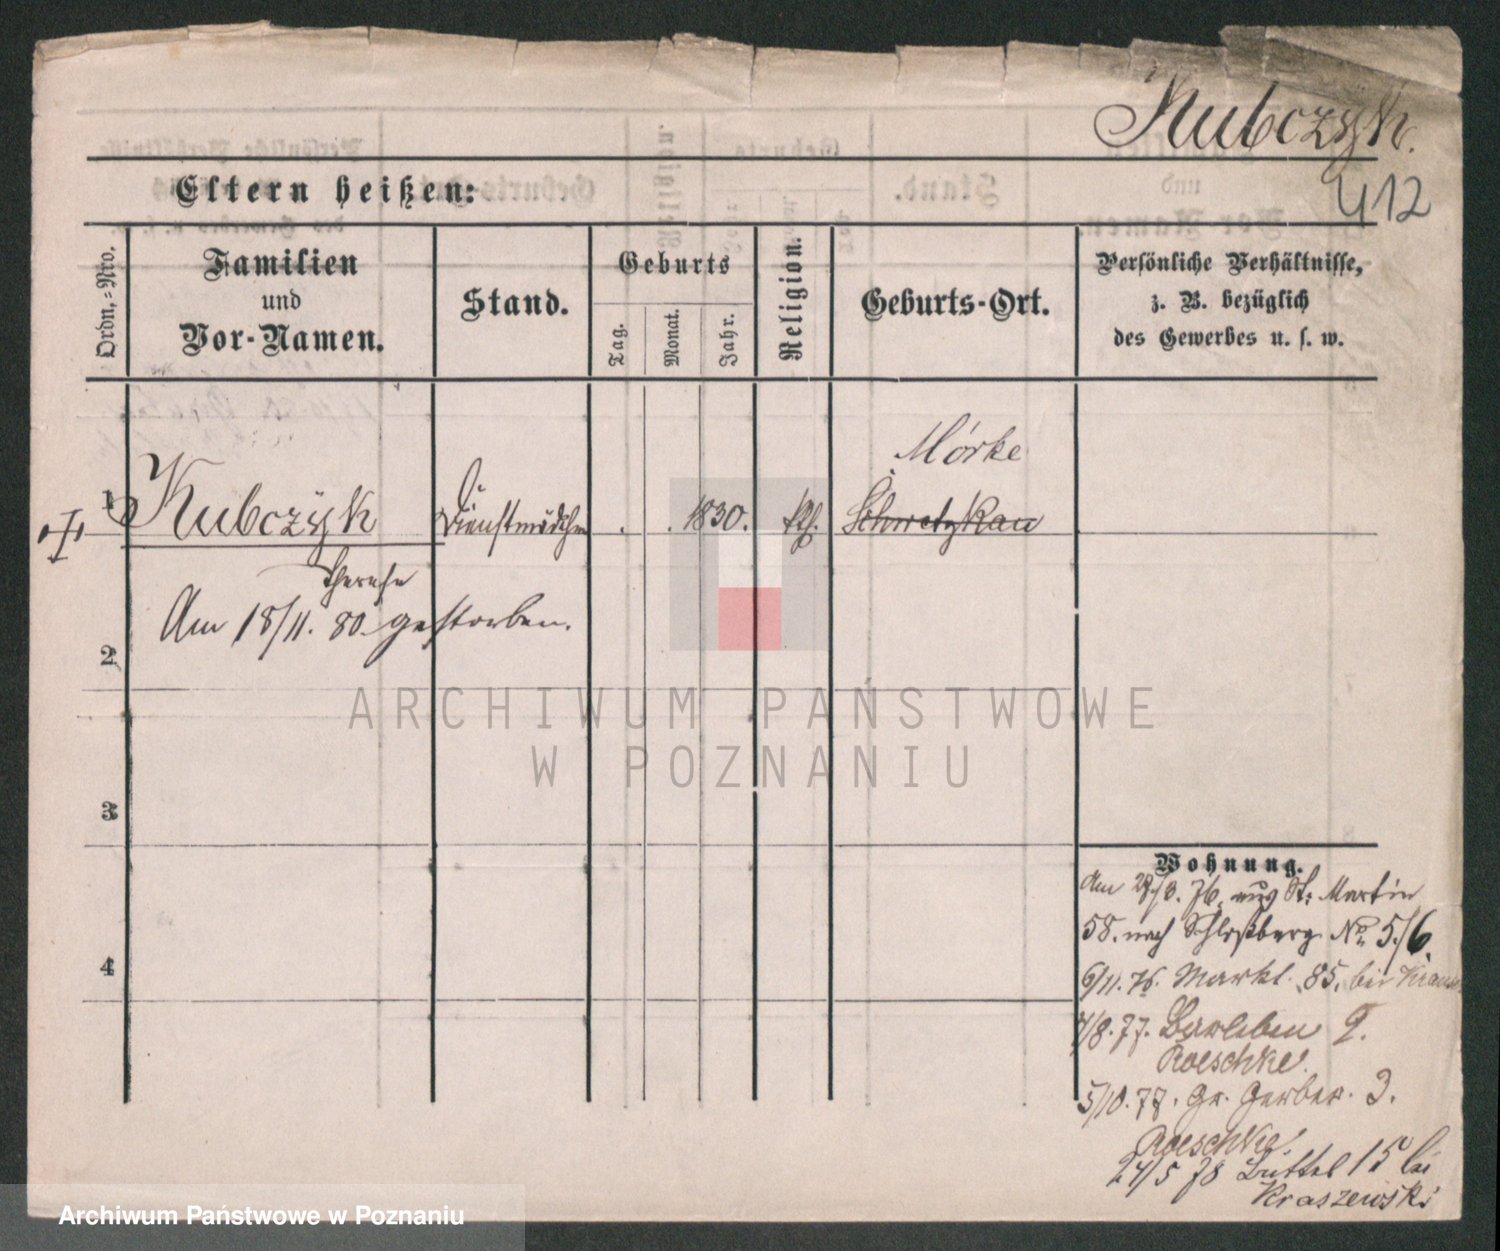 Kubczyk.
412
Eltern heißen:
Ordn.-Nro.
Familien
und
Vor-Namen.
Stand.
Geburts
Tag.
Monat.
Jahr.
Religion.
Geburts-Ort.
Persönliche Verhältnisse,
z. B. bezüglich
des Gewerbes u. s. w.
Mórke
1 Kubczyk Dienstmädchen . . 1830. kth. Schwetzkau
Therese
Am 18/11. 80. gestorben.
2
3
4
Wohnung.
Am 29/3. 76. aus St. Martin
58. nach Schloßberg No 5/6.
6/11. 76. Markt. 85. bei
7/8. 77. Berleben 9.
Roeschke.
5/10. 77. Gr. Gerber. 3.
Roeschke
24/5 78 Büttel 15 bei
Kraszewski
ARCHIWUM PAŃSTWOWE
W POZNANIU
Archiwum Państwowe w Poznaniu